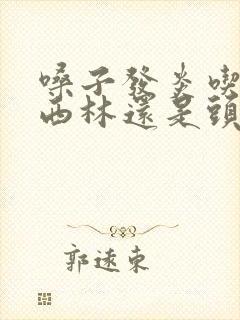 嗓子發炎喫
西林還是頭
郭遠東